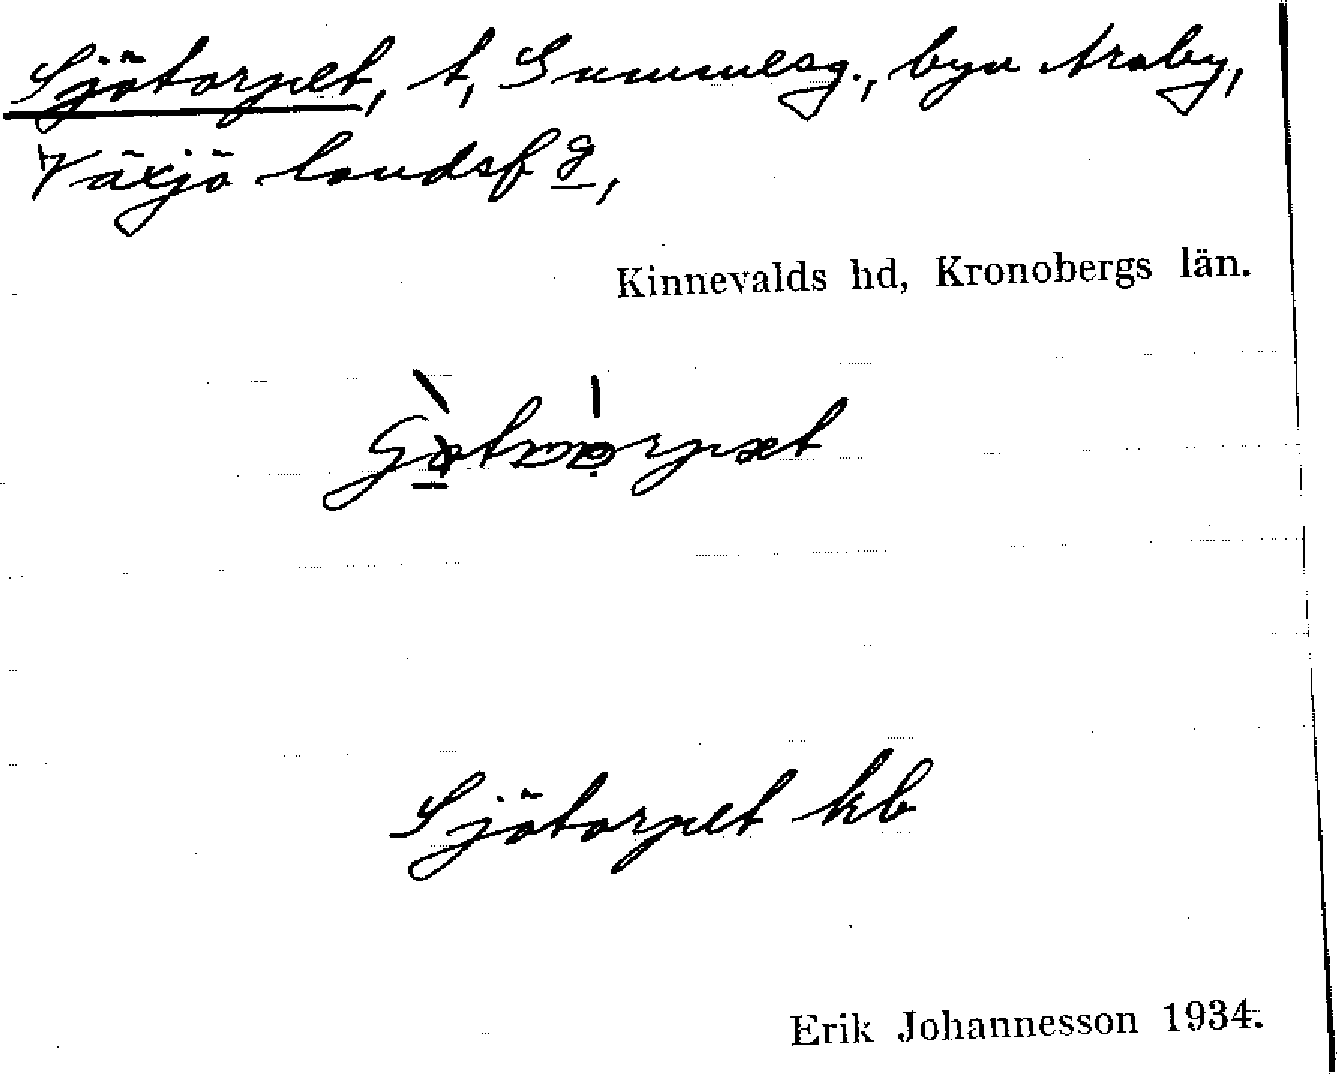 Sjötorpet, t, Summesg., byn Araby,
Växjö landsf g,
Kinnevalds hd, Kronobergs län.
Sjötorpet kb
Erik Johannesson 1934.